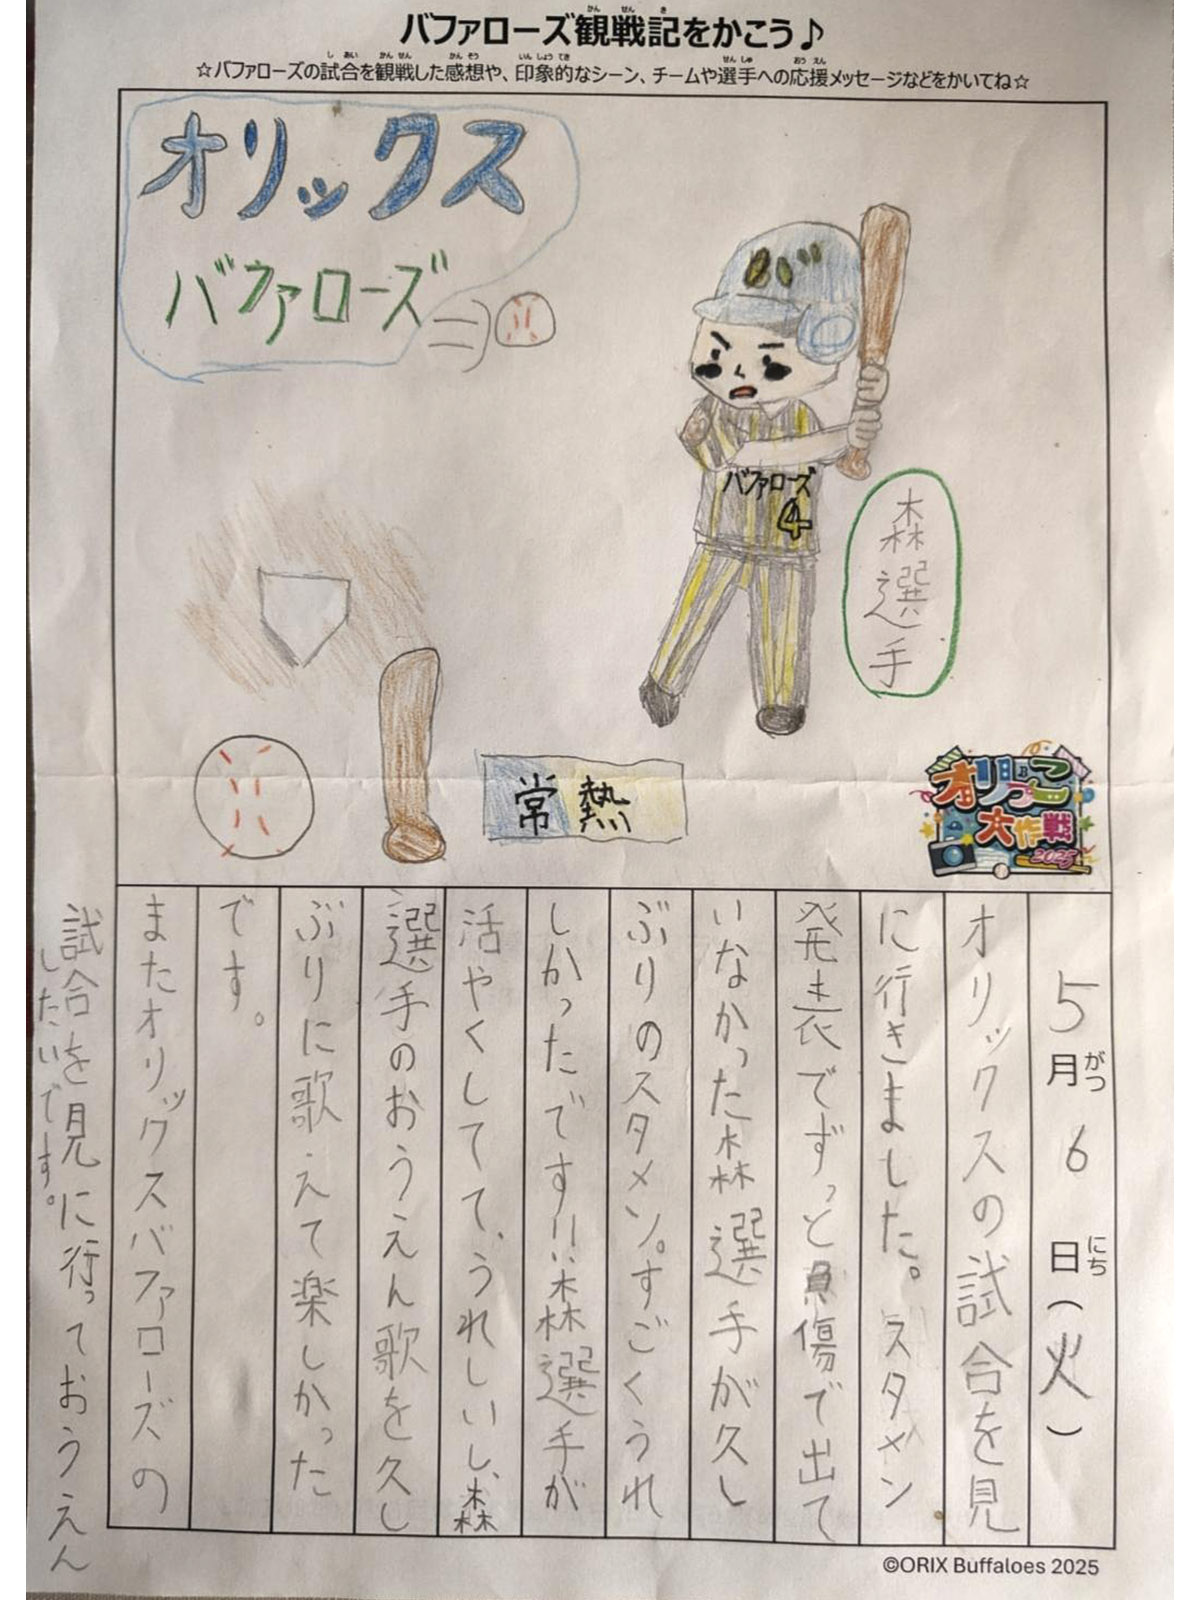 バファローズ観戦記をかこう♪
☆バファローズの試合を観戦した感想や、印象的なシーン、チームや選手への応援メッセージなどをかいてね☆
オリックス
バファローズ
バファローズ
4
森選手
常熱
オリっこ
大作戦
2025
5月6日(火)
オリックスの試合を見
に行きました。スタメン
発表でずっと負傷で出て
いなかった森選手が久し
ぶりのスタメン。すごくうれ
しかったです!!森選手が
活やくしてて、うれしいし、森
選手のおうえん歌を久し
ぶりに歌えて楽しかった
です。
またオリックスバファローズの
試合を見に行っておうえん
したいです。
©ORIX Buffaloes 2025